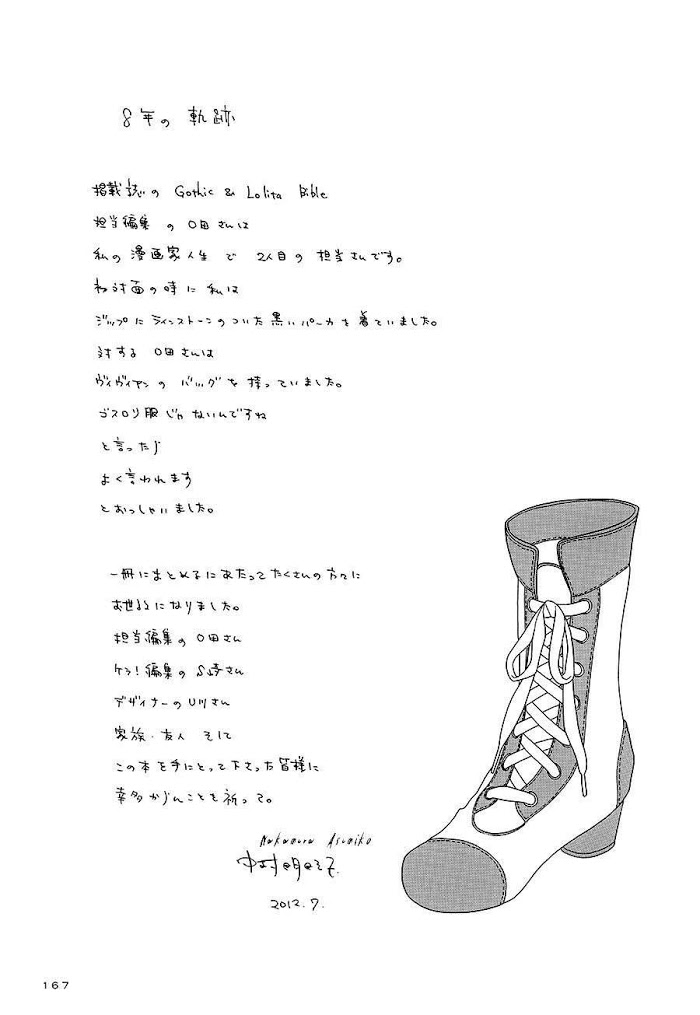 8年の 軌跡
掲載誌の Gothic & Lolita Bible
担当編集 の O田さんは
私の 漫画家人生 で 2人目の 担当さんです。
初対面の時に 私は
ジップに ラインストーンのついた 黒いパーカを 着ていました。
対する O田さんは
ヴィヴィアンの バッグを 持っていました。
ゴスロリ服じゃ ないんですね
と言ったら
よく言われます
とおっしゃいました。
一冊にまとめるにあたって たくさんの方々に
お世話になりました。
担当編集の O田さん
ケラ!編集の S崎さん
デザイナーの U川さん
家族・友人 そして
この本を手にとって下さった皆様に
幸多からんことを祈って。
Nakamura Asumiko
中村明日美子
2012.7.
167